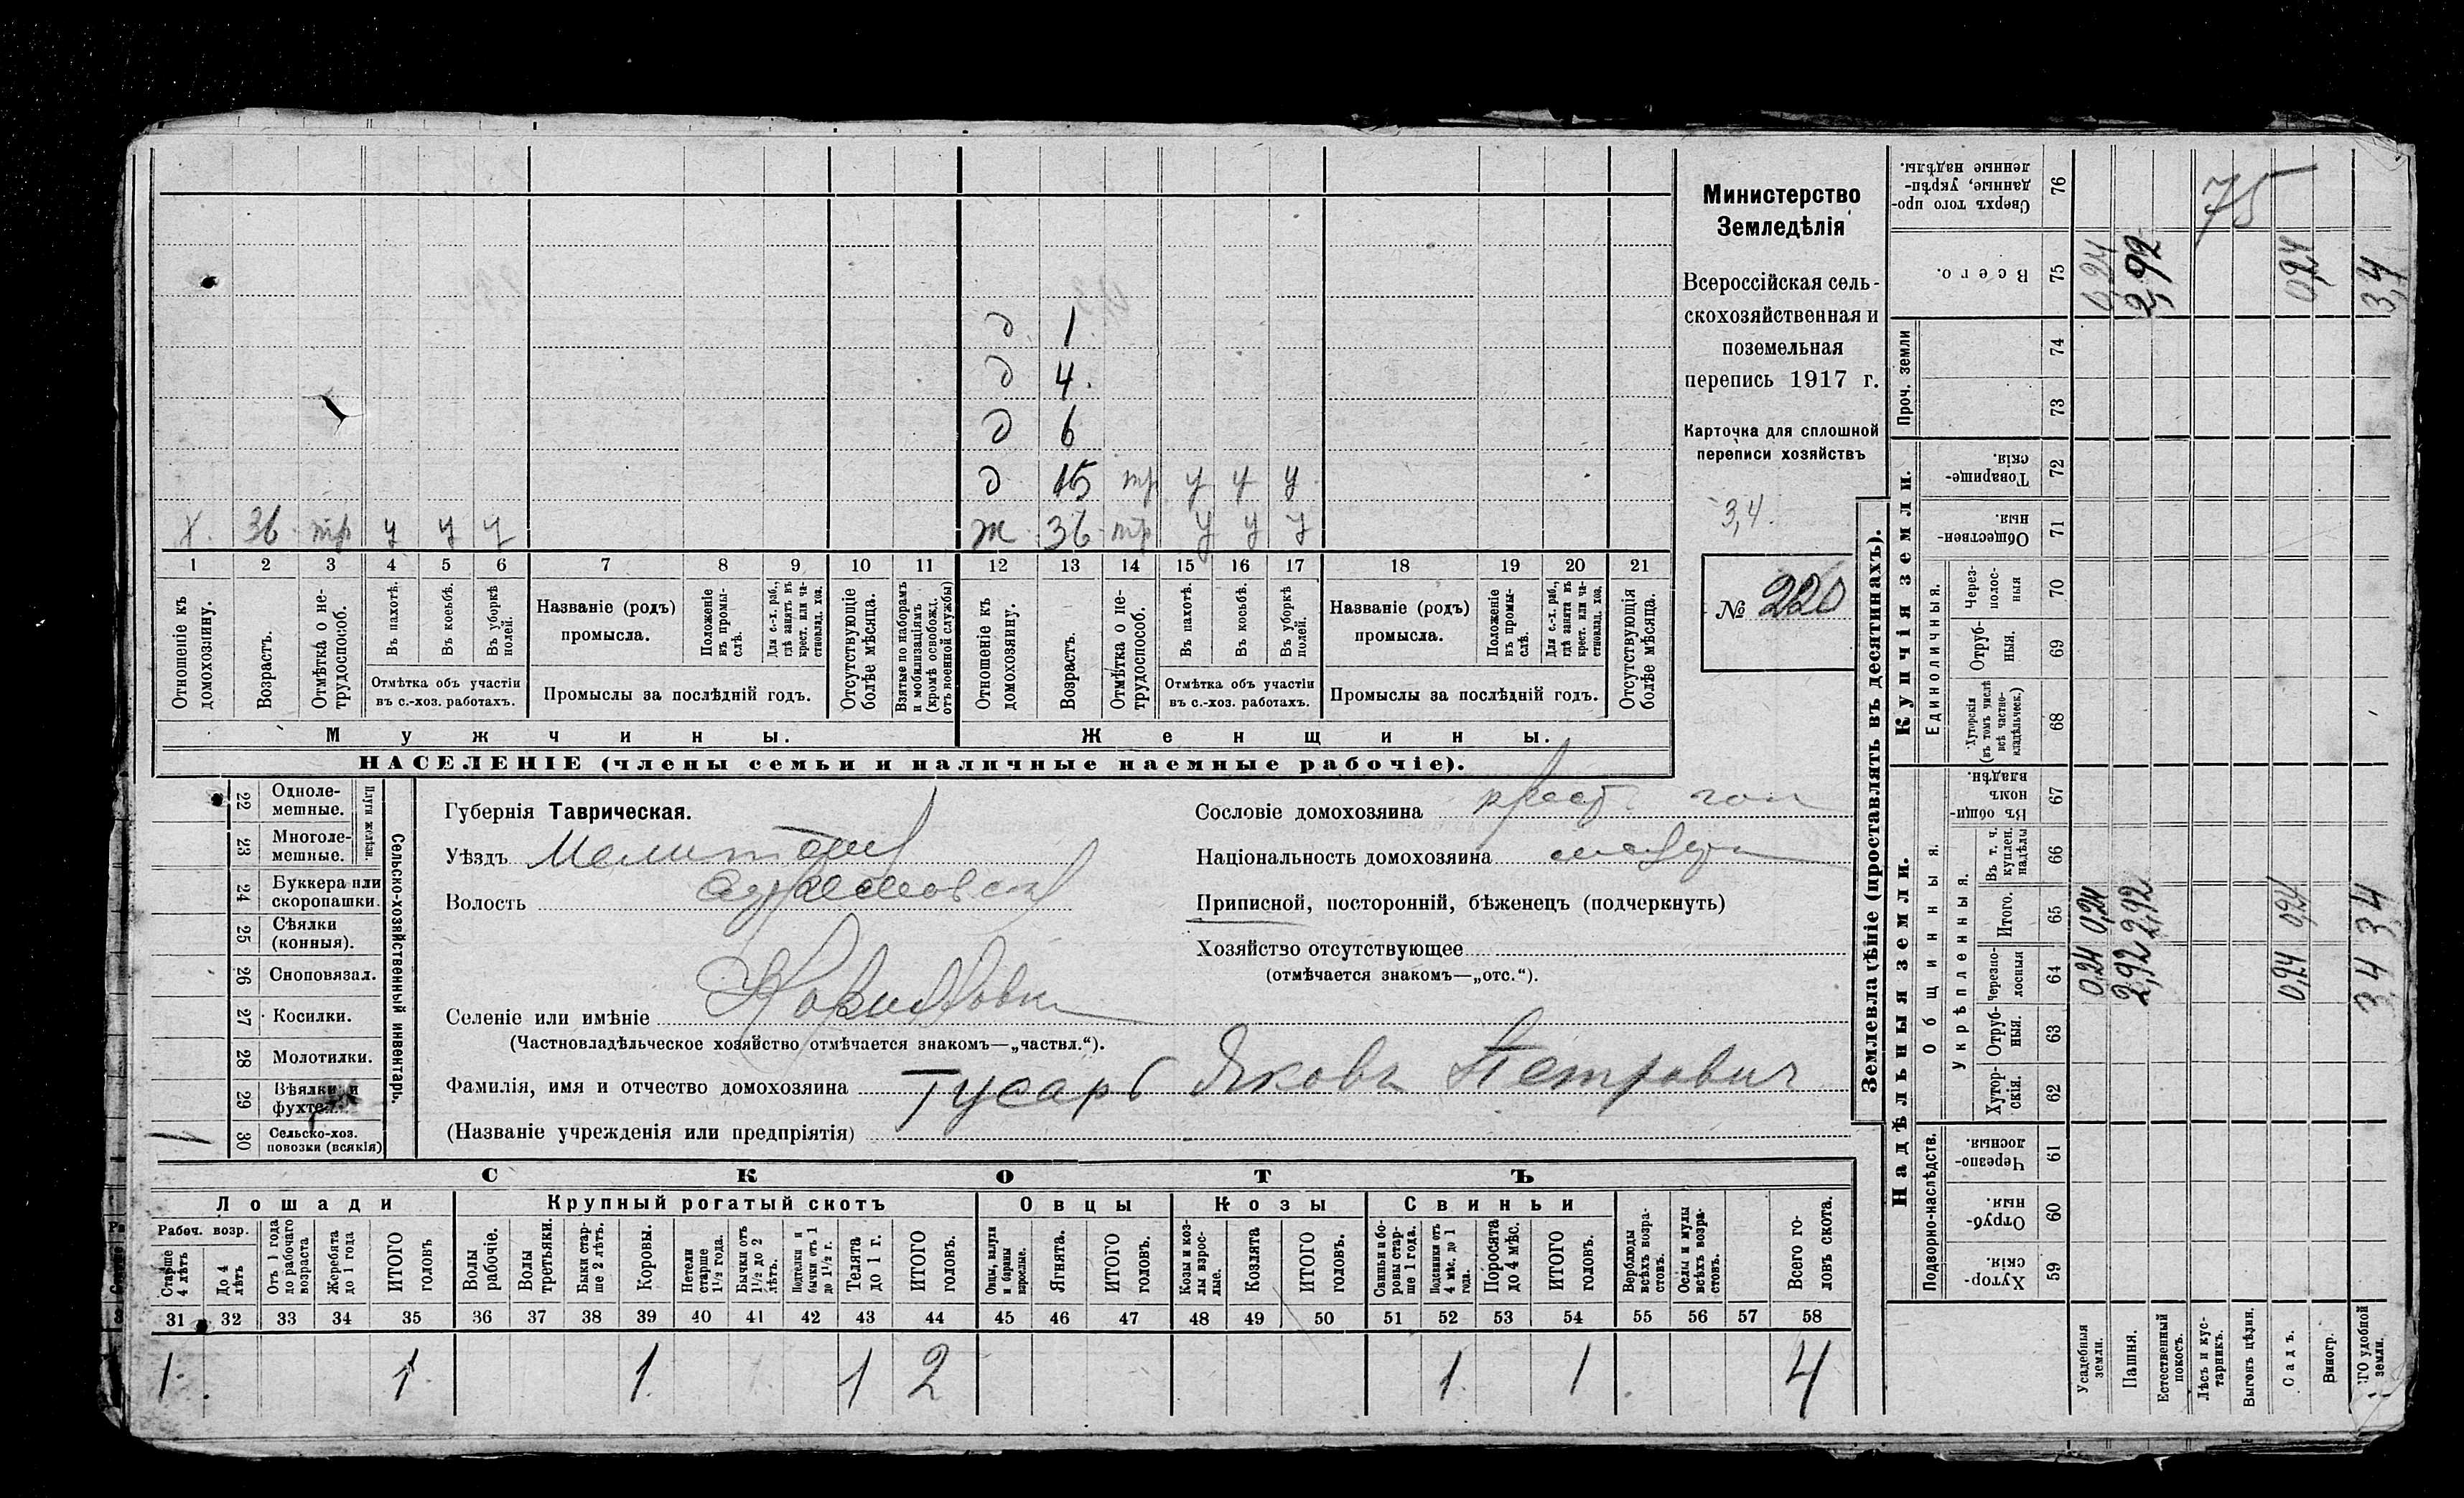 Министерство
Земледѣлія
Всероссійская сель-
скохозяйственная и
поземельная
перепись 1917 г.
Карточка для сплошной
переписи хозяйствъ
3,4.
№ 220
д 1
д 4.
д 6
д 15 тр у у у
х. 36 тр у у у ж 36 тр у у у
1 2 3 4 5 6 7 8 9 10 11 12 13 14 15 16 17 18 19 20 21
Отношеніе къ домохозяину.
Возрастъ.
Отмѣтка о не-трудоспособ.
Въ пахотѣ.
Въ косьбѣ.
Въ уборкѣ полей.
Отмѣтка объ участіи
въ с.-хоз. работахъ.
Названіе (родъ)
промысла.
Положеніе въ промы-слѣ.
Для с.-х. раб., гдѣ занятъ въ крест. или ча-стновлад. хоз.
Промыслы за послѣдній годъ.
Отсутствующіе болѣе мѣсяца.
Взятые по наборамъ и мобилизаціямъ (кромѣ освобожд. отъ военной службы)
Отношеніе къ домохозяину.
Возрастъ.
Отмѣтка о не-трудоспособ.
Въ пахотѣ.
Въ косьбѣ.
Въ уборкѣ полей.
Отмѣтка объ участіи
въ с.-хоз. работахъ.
Названіе (родъ)
промысла.
Положеніе въ промы-слѣ.
Для с.-х. раб., гдѣ занята въ крест. или ча-стновлад. хоз.
Промыслы за послѣдній годъ.
Отсутствующія болѣе мѣсяца.
Мужчины. Женщины.
НАСЕЛЕНІЕ (члены семьи и наличные наемные рабочіе).
22 Одноле-мешные.
23 Многоле-мешные.
Плуги желѣзн.
24 Буккера или скоропашки.
25 Сѣялки (конныя).
26 Сноповязал.
27 Косилки.
28 Молотилки.
29 Вѣялки и фухтел.
1 30 Сельско-хоз. повозки (всякія)
Сельско-хозяйственный инвентарь.
Губернія Таврическая.
Уѣздъ Мелитоп
Волость
Селеніе или имѣніе
(Частновладѣльческое хозяйство отмѣчается знакомъ—„частвл.“).
Фамилія, имя и отчество домохозяина Гусаръ Яковъ Петровичъ
(Названіе учрежденія или предпріятія)
Сословіе домохозяина крест.
Національность домохозяина
Приписной, посторонній, бѣженецъ (подчеркнуть)
Хозяйство отсутствующее
(отмѣчается знакомъ—„отс.“).
СКОТЪ
Лошади Крупный рогатый скотъ Овцы Козы Свиньи
Рабоч. возр.
Старше 4 лѣтъ
До 4 лѣтъ
Отъ 1 года до рабочаго возраста
Жеребята до 1 года
ИТОГО головъ
Волы рабочіе.
Волы третьяки.
Быки стар-ше 2 лѣтъ.
Коровы.
Нетели старше 1½ года.
Бычки отъ 1½ до 2 лѣтъ.
Подтелки и бычки отъ 1 до 1½ г.
Телята до 1 г.
ИТОГО головъ.
Овцы, валухи и бараны взрослые.
Ягнята.
ИТОГО головъ.
Козы и коз-лы взрос-лые.
Козлята
ИТОГО головъ.
Свиньи и бо-ровы стар-ше 1 года.
Подсвинки отъ 4 мѣс. до 1 года.
Поросята до 4 мѣс.
ИТОГО головъ.
Верблюды всѣхъ возра-стовъ.
Ослы и мулы всѣхъ возра-стовъ.
Всего го-ловъ скота.
31 32 33 34 35 36 37 38 39 40 41 42 43 44 45 46 47 48 49 50 51 52 53 54 55 56 57 58
1 1 1 1 2 1 1 4
Землевладѣніе (проставлять въ десятинахъ).
Надѣльныя земли. Купчія земли. Проч. земли
Подворно-наслѣдств.
Общинныя.
Укрѣпленныя.
Единоличныя.
Хутор-скія. 59
Отруб-ныя. 60
Черезпо-лосныя. 61
Хутор-скія. 62
Отруб-ныя. 63
Черезпо-лосныя 64
Итого. 65
Въ т. ч. куплен. надѣлы 66
Въ общи-номъ владѣн. 67
Хуторскія (въ томъ числѣ всѣ частно-владѣльческ.) 68
Отруб-ныя. 69
Через-полос-ныя 70
Обществен-ныя. 71
Товарище-скія. 72
73
74
Всего. 75
Сверхъ того про-данные, укрѣп-ленные надѣлы. 76
75
Усадебныя земли. 0,24 0,24 0,24
Пашня. 2,92 2,92 2,92
Естественный покосъ.
Лѣсъ и кус-тарникъ.
Выгонъ цѣлин.
Садъ. 0,24 0,24 0,24
Виногр.
ИТОГО удобной земли. 3,4 3,4 3,4